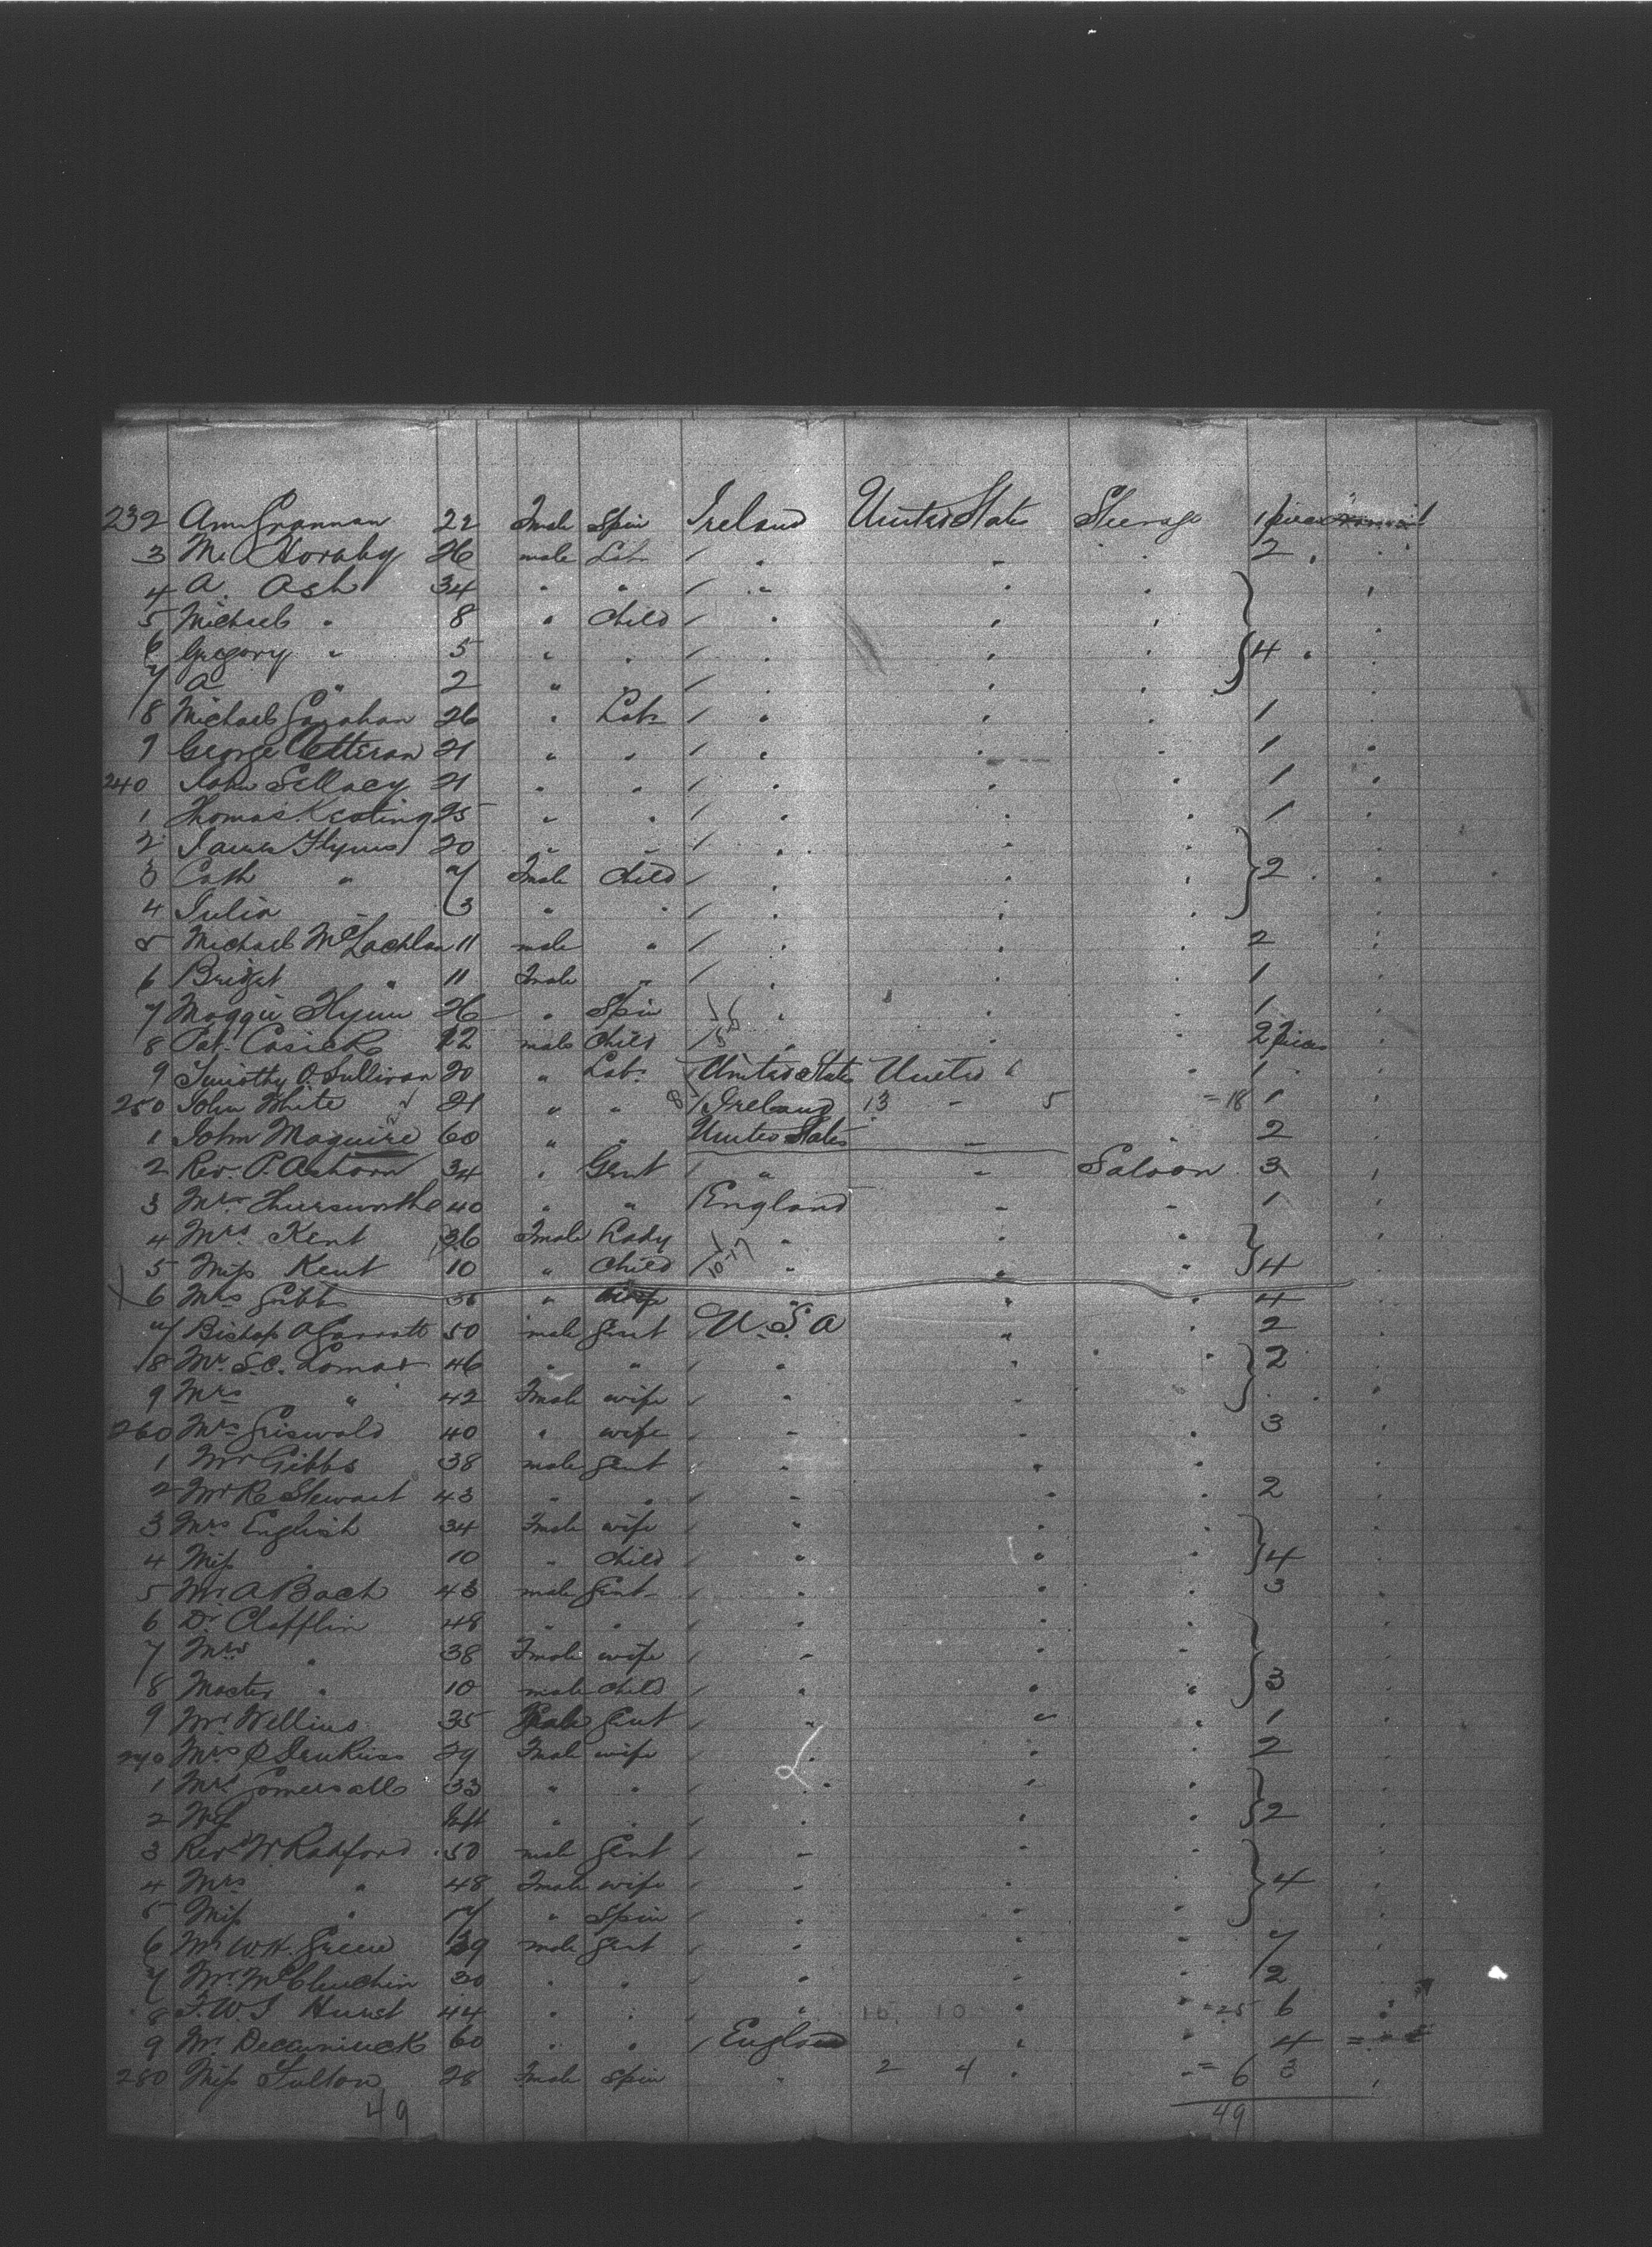 232 Ann Grannan 22 Fmale Spin Ireland United States Steerage 1 piece
3 M. Hornby 26 male Lab " " " 2 "
4 A. Ash 34 " " " " "
5 Michael " 8 " Child " " "
6 Gregory " 5 " " " " " 4 "
7 A " 2 " " " " "
8 Michael 26 " Lab " " " 1
9 George 21 " " " " " 1
240 John 21 " " " " " 1
1 Thomas Keating 25 " " " " " 1
2 James Flynn 20 " " " " "
3 Cath " 7 Fmale Child " " " 2
4 Julia " 3 " " " " "
5 Michael McLachlan 11 male " " " " 2
6 Bridget " 11 Fmale " " " " 1
7 Maggie Flynn 26 " Spin " " " 1
8 Pat. Cusick 12 male Child " " " 2 pieces
9 Timothy O. Sullivan 20 " Lab. United States United " 1
250 John White 21 " " Ireland 13 - 5 = 18 1
1 John Maguire 60 " " United States " " 2
2 Rev. P. 34 " Gent " " Saloon 3
3 40 " " England " " 1
4 Mrs Kent 36 Fmale Lady " " "
5 Miss Kent 10 " Child 10-17 " " " 4
6 Mrs Gibbs 36 " " " " 4
7 Bishop 50 male Gent U.S.A " " 2
8 Mr. S.C. Lomas 46 " " " " " 2
9 Mrs " 42 Fmale wife " " "
260 Mrs Griswald 40 " wife " " " 3
1 Mr Gibbs 38 male Gent " " "
2 Mr R Stewart 43 " " " " " 2
3 Mrs English 34 Fmale wife " " "
4 Miss " 10 " Child " " " 4
5 Mr A Bach 43 male Gent " " " 3
6 Dr Clafflin 48 " " " " "
7 Mrs " 38 Fmale wife " " "
8 Master " 10 male Child " " " 3
9 Mr Wellins 35 male Gent " " " 1
270 Mrs Jenkins 29 Fmale wife " " " 2
1 Mrs Gomersall 33 " " " " "
2 Miss " Inft " " " " " 2
3 Rev W Radford 50 male Gent " " "
4 Mrs " 48 Fmale wife " " " 4
5 Miss " 17 " Spin " " "
6 Mr W.H. Green 39 male Gent " " " 7
7 Mr. 30 " " " " " 2
8 F.W.J. Hurst 44 " " " 15 10 " " =25 6
9 Mr. 60 " " England " " 4
280 Miss Fulton 28 Fmale Spin " 2 4 " " = 6 3
49 49